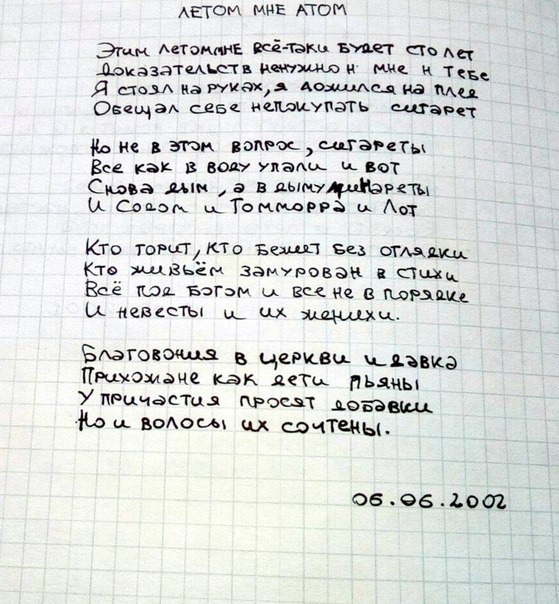 ЛЕТОМ МНЕ АТОМ
Этим летом мне всё-таки будет сто лет
Доказательств ненужно н мне н тебе
Я стоял на руках, я ложился на плее
Обещал себе непокупать сигарет
Но не в этом вопрос, сигареты
Все как в воду упали и вот
Снова дым, а в дыму минареты
И Содом и Гомморра и Лот
Кто горит, кто бежит без оглядки
Кто живьём замурован в стихи
Всё под богом и все не в порядке
И невесты и их женихи.
Благовония в церкви и давка
Прихожане как дети пьяны
У причастия просят добавки
Но и волосы их сочтены.
06.06.2002